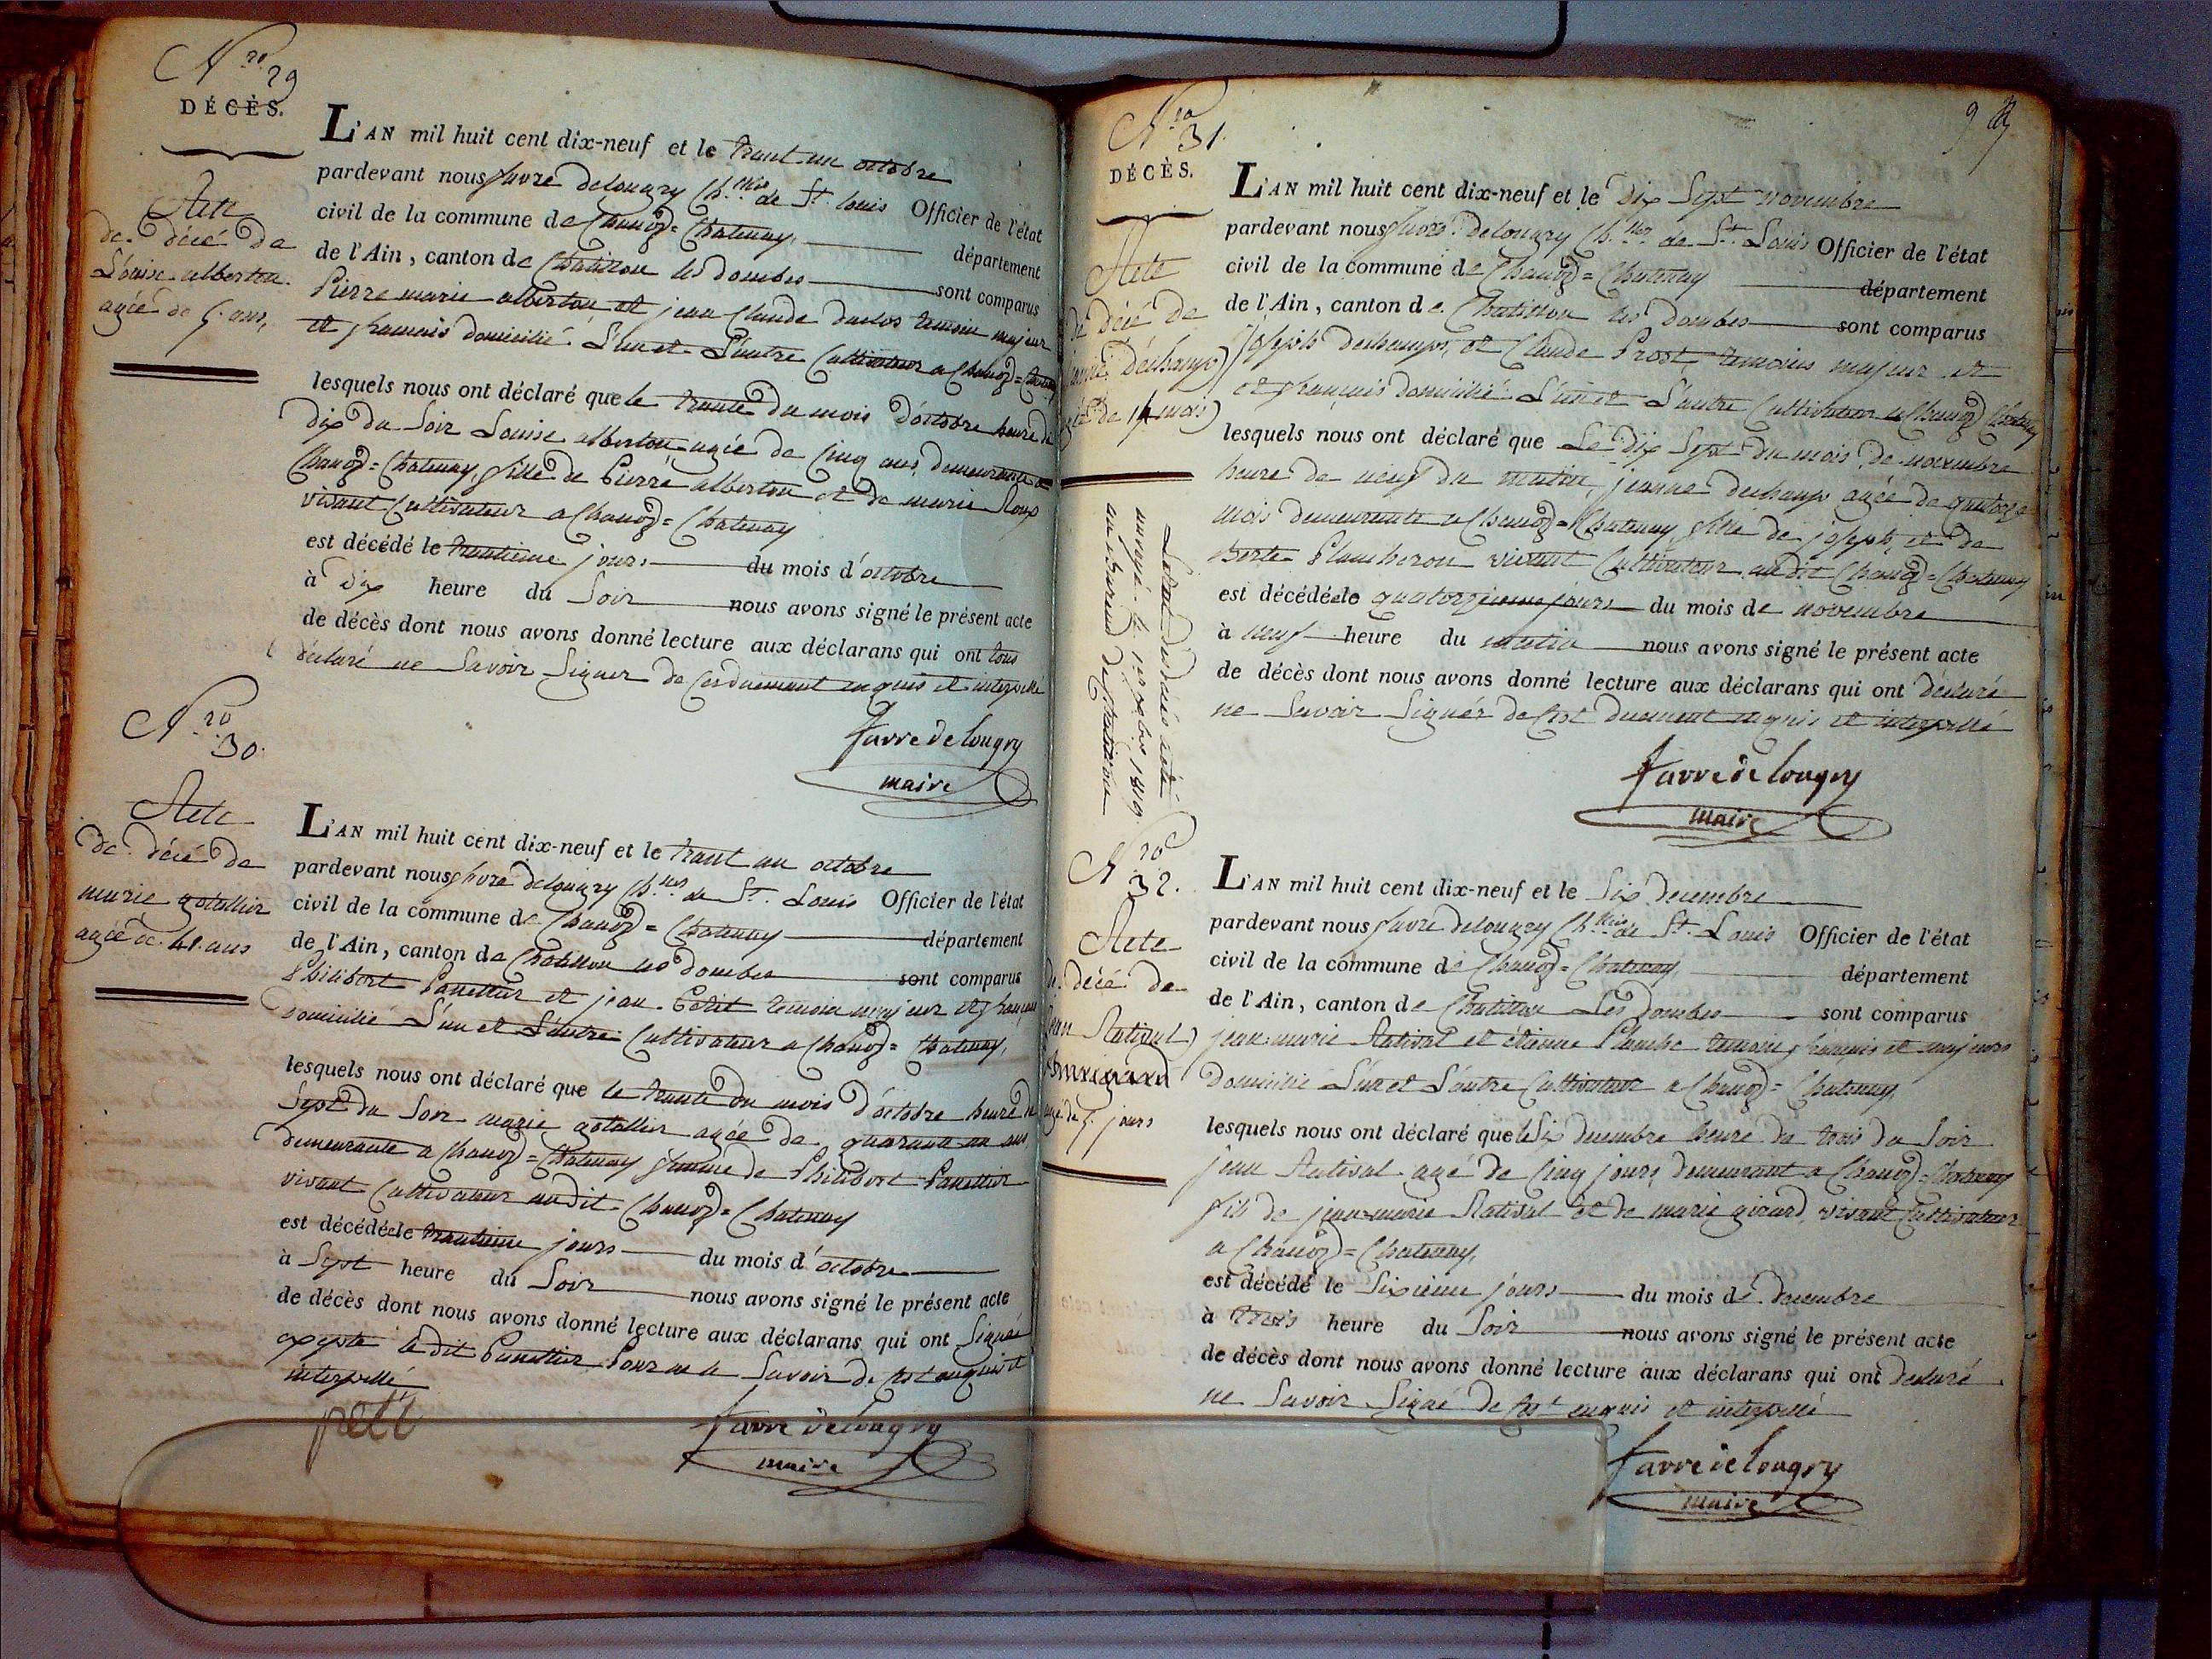 Nro 29
DÉCÈS.
Acte
de décé de
Louise alberton
agée de 5. ans,
L'AN mil huit cent dix-neuf et le trant un octobre
pardevant nous favre delongry Ch.lier de St. louis Officier de l'état
civil de la commune de Chanoz=Chatenay, département
de l'Ain, canton de Chatillon les dombes sont comparus
Pierre marie alberton et jean Claude duclos temoin majeur
et francais domicilié L'un et L'autre Cultivateur a Chanoz=Chatenay
lesquels nous ont déclaré que le trante du mois d'octobre heure de
dix du Soir Louise alberton agée de Cinq ans demeurante a
Chanoz=Chatenay, fille de Pierre alberton et de marie Loup
vivant Cultivateur a Chanoz=Chatenay
est décédé le trantieme jours du mois d'octobre
à dix heure du Soir nous avons signé le présent acte
de décès dont nous avons donné lecture aux déclarans qui ont tous
déclaré ne Savoir Signer de Ces duement enquis et interpellé
favre de longry
maire
Nro 30.
Acte
de décé de
marie gotallier
agée de 41. ans
L'AN mil huit cent dix-neuf et le trant un octobre
pardevant nous favre delongry Ch.lier de St. Louis Officier de l'état
civil de la commune de Chanoz=Chatenay département
de l'Ain, canton de Chatillon les dombes sont comparus
Philibert Panettier et jean Petit temoin majeur et francais
domicilié L'un et L'autre Cultivateur a Chanoz=Chatenay,
lesquels nous ont déclaré que le trante du mois d'octobre heure de
Sept du Soir marie gotallier agée de quarante un ans
demeurante a Chanoz=Chatenay femme de Philibert Panettier
vivant Cultivateur audit Chanoz=Chatenay
est décédée le trantieme jours du mois d'octobre
à Sept heure du Soir nous avons signé le présent acte
de décès dont nous avons donné lecture aux déclarans qui ont Signé
exepté ledit Panettier Pour ne le Savoir de Cest enquis et
interpellé
petit
favre de longry
maire
Nro 31.
DÉCÈS.
Acte
de décé de
jeanne dechamps
agée de 14 mois
L'etat des décés a été
envoyé le 1er xbre 1819
au Bureau de Chatillon
L'AN mil huit cent dix-neuf et le dix Sept novembre
pardevant nous favre delongry Ch.lier de St. Louis Officier de l'état
civil de la commune de Chanoz=Chatenay département
de l'Ain, canton de Chatillon les dombes sont comparus
joseph dechamps, et Claude Prost, temoins majeur et
et français domicilié L'un et L'autre Cultivateur a Chanoz Chatenay
lesquels nous ont déclaré que Le dix Sept du mois de novembre
heure de neuf du matin, jeanne dechamps agée de quatorze
mois demeurante a Chanoz=Chatenay, fille de joseph, et de
Plancheron vivant Cultivateur audit Chanoz=Chatenay
est décédée le quatorzieme jours du mois de novembre
à neuf heure du matin nous avons signé le présent acte
de décès dont nous avons donné lecture aux déclarans qui ont déclaré
ne Savoir Signer de Cest duement enquis et interpellé
favre de longry
maire
Nro 32.
Acte
de décé de
jean Rativat
agé de 5. jours
L'AN mil huit cent dix-neuf et le Six Decembre
pardevant nous favre delongry Ch.lier de St. Louis Officier de l'état
civil de la commune de Chanoz=Chatenay département
de l'Ain, canton de Chatillon Les Dombes sont comparus
jean marie Rativat et etienne Planche temoin français et majeurs
domicilié L'un et L'autre Cultivateur a Chanoz=Chatenay,
lesquels nous ont déclaré que le Six decembre heure de trois du Soir
jean Rativat agé de Cinq jours demeurant a Chanoz=Chatenay
fils de jean-marie Rativat et de marie girard, vivant Cultivateur
a Chanoz=Chatenay,
est décédé le Sixieme jours du mois de decembre
à trois heure du Soir nous avons signé le présent acte
de décès dont nous avons donné lecture aux déclarans qui ont declaré
ne Savoir Signé de Cest enquis et interpellé
favre de longry
maire